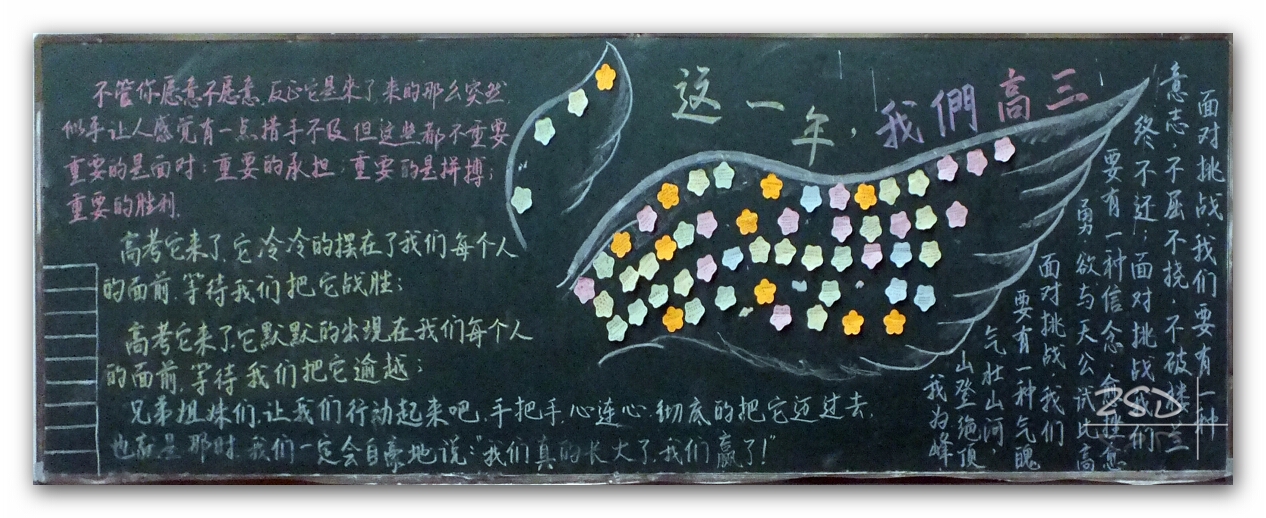 这一年，我們高三
不管你愿意不愿意,反正它是来了,来的那么突然,
似乎让人感觉有一点措手不及,但这些都不重要
重要的是面对；重要的承担；重要的是拼搏；
重要的胜利.
高考它来了,它冷冷的摆在了我们每个人
的面前,等待我们把它战胜；
高考它来了,它默默的出现在我们每个人
的面前,等待我们把它逾越；
兄弟姐妹们,让我们行动起来吧,手把手,心连心,彻底的把它迈过去,
也就是那时,我们一定会自豪地说:"我们真的长大了,我们赢了!"
面对挑战,我们要有一种
意志,不屈不挠,不破楼兰
终不还；面对挑战,我们
要有一种信念,愈挫愈
勇,欲与天公试比高
面对挑战,我们
要有一种气魄
气壮山河,
山登绝顶
我为峰
ZSD